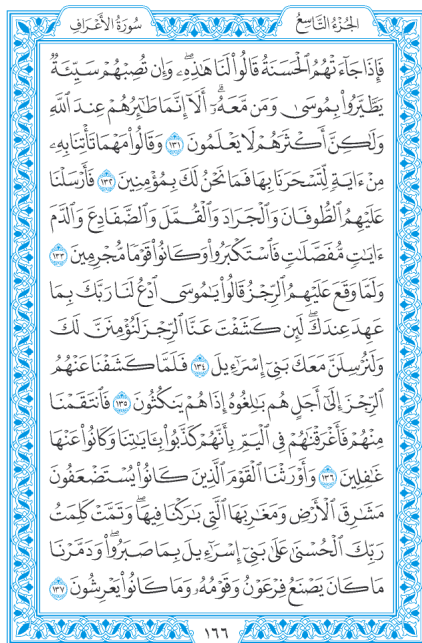 الجُزْءُ التَّاسِعُ
سُورَةُ الأَعْرَافِ
فَإِذَا جَآءَتْهُمُ ٱلْحَسَنَةُ قَالُوا۟ لَنَا هَٰذِهِۦ ۖ وَإِن تُصِبْهُمْ سَيِّئَةٌ
يَطَّيَّرُوا۟ بِمُوسَىٰ وَمَن مَّعَهُۥٓ ۗ أَلَآ إِنَّمَا طَٰٓئِرُهُمْ عِندَ ٱللَّهِ
وَلَٰكِنَّ أَكْثَرَهُمْ لَا يَعْلَمُونَ ١٣١ وَقَالُوا۟ مَهْمَا تَأْتِنَا بِهِۦ
مِنْ ءَايَةٍ لِّتَسْحَرَنَا بِهَا فَمَا نَحْنُ لَكَ بِمُؤْمِنِينَ ١٣٢ فَأَرْسَلْنَا
عَلَيْهِمُ ٱلطُّوفَانَ وَٱلْجَرَادَ وَٱلْقُمَّلَ وَٱلضَّفَادِعَ وَٱلدَّمَ
ءَايَٰتٍ مُّفَصَّلَٰتٍ فَٱسْتَكْبَرُوا۟ وَكَانُوا۟ قَوْمًا مُّجْرِمِينَ ١٣٣
وَلَمَّا وَقَعَ عَلَيْهِمُ ٱلرِّجْزُ قَالُوا۟ يَٰمُوسَى ٱدْعُ لَنَا رَبَّكَ بِمَا
عَهِدَ عِندَكَ ۖ لَئِن كَشَفْتَ عَنَّا ٱلرِّجْزَ لَنُؤْمِنَنَّ لَكَ
وَلَنُرْسِلَنَّ مَعَكَ بَنِىٓ إِسْرَٰٓءِيلَ ١٣٤ فَلَمَّا كَشَفْنَا عَنْهُمُ
ٱلرِّجْزَ إِلَىٰٓ أَجَلٍ هُم بَٰلِغُوهُ إِذَا هُمْ يَنكُثُونَ ١٣٥ فَٱنتَقَمْنَا
مِنْهُمْ فَأَغْرَقْنَٰهُمْ فِى ٱلْيَمِّ بِأَنَّهُمْ كَذَّبُوا۟ بِـَٔايَٰتِنَا وَكَانُوا۟ عَنْهَا
غَٰفِلِينَ ١٣٦ وَأَوْرَثْنَا ٱلْقَوْمَ ٱلَّذِينَ كَانُوا۟ يُسْتَضْعَفُونَ
مَشَٰرِقَ ٱلْأَرْضِ وَمَغَٰرِبَهَا ٱلَّتِى بَٰرَكْنَا فِيهَا ۖ وَتَمَّتْ كَلِمَتُ
رَبِّكَ ٱلْحُسْنَىٰ عَلَىٰ بَنِىٓ إِسْرَٰٓءِيلَ بِمَا صَبَرُوا۟ ۖ وَدَمَّرْنَا
مَا كَانَ يَصْنَعُ فِرْعَوْنُ وَقَوْمُهُۥ وَمَا كَانُوا۟ يَعْرِشُونَ ١٣٧
١٦٦